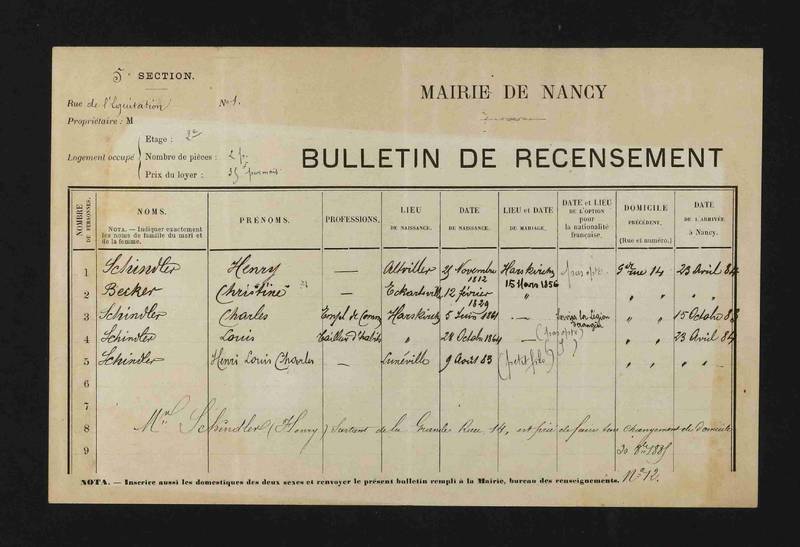 5e SECTION.
MAIRIE DE NANCY
Rue de l'Equitation No 1.
Propriétaire : M
Etage : 2e
Logement occupé
Nombre de pièces : 2 p.
Prix du loyer : 25f par mois
BULLETIN DE RECENSEMENT
NOMBRE DE PERSONNES.
NOMS.
NOTA. — Indiquer exactement les noms de famille du mari et de la femme.
PRENOMS.
PROFESSIONS.
LIEU DE NAISSANCE.
DATE DE NAISSANCE.
LIEU et DATE DE MARIAGE.
DATE et LIEU DE L'OPTION pour la nationalité française.
DOMICILE PRÉCÉDENT. (Rue et numéro.)
DATE DE L'ARRIVÉE à Nancy.
1 Schindler Henry — Altviller 25 Novembre 1812 Harskirch 15 Mars 1856 pas opté Gde rue 14 23 Avril 84
2 Becker Christine — 12 février 1829 " "
3 Schindler Charles Empl de Comm Harskirch 5 Juin 1861 — " " 15 Octobre 83
4 Schindler Louis Tailleur d'habits " 28 Octobre 1864 — (pas opté) " " 23 Avril 84
5 Schindler Henri Louis Charles — Lunéville 9 Avril 83 (petit fils) " " " "
6
7
8 Mr Schindler (Henry) sortant de la Grande Rue 14, est prié de faire son changement de domicile
9 1885
No 12.
NOTA. — Inscrire aussi les domestiques des deux sexes et renvoyer le présent bulletin rempli à la Mairie, bureau des renseignements.